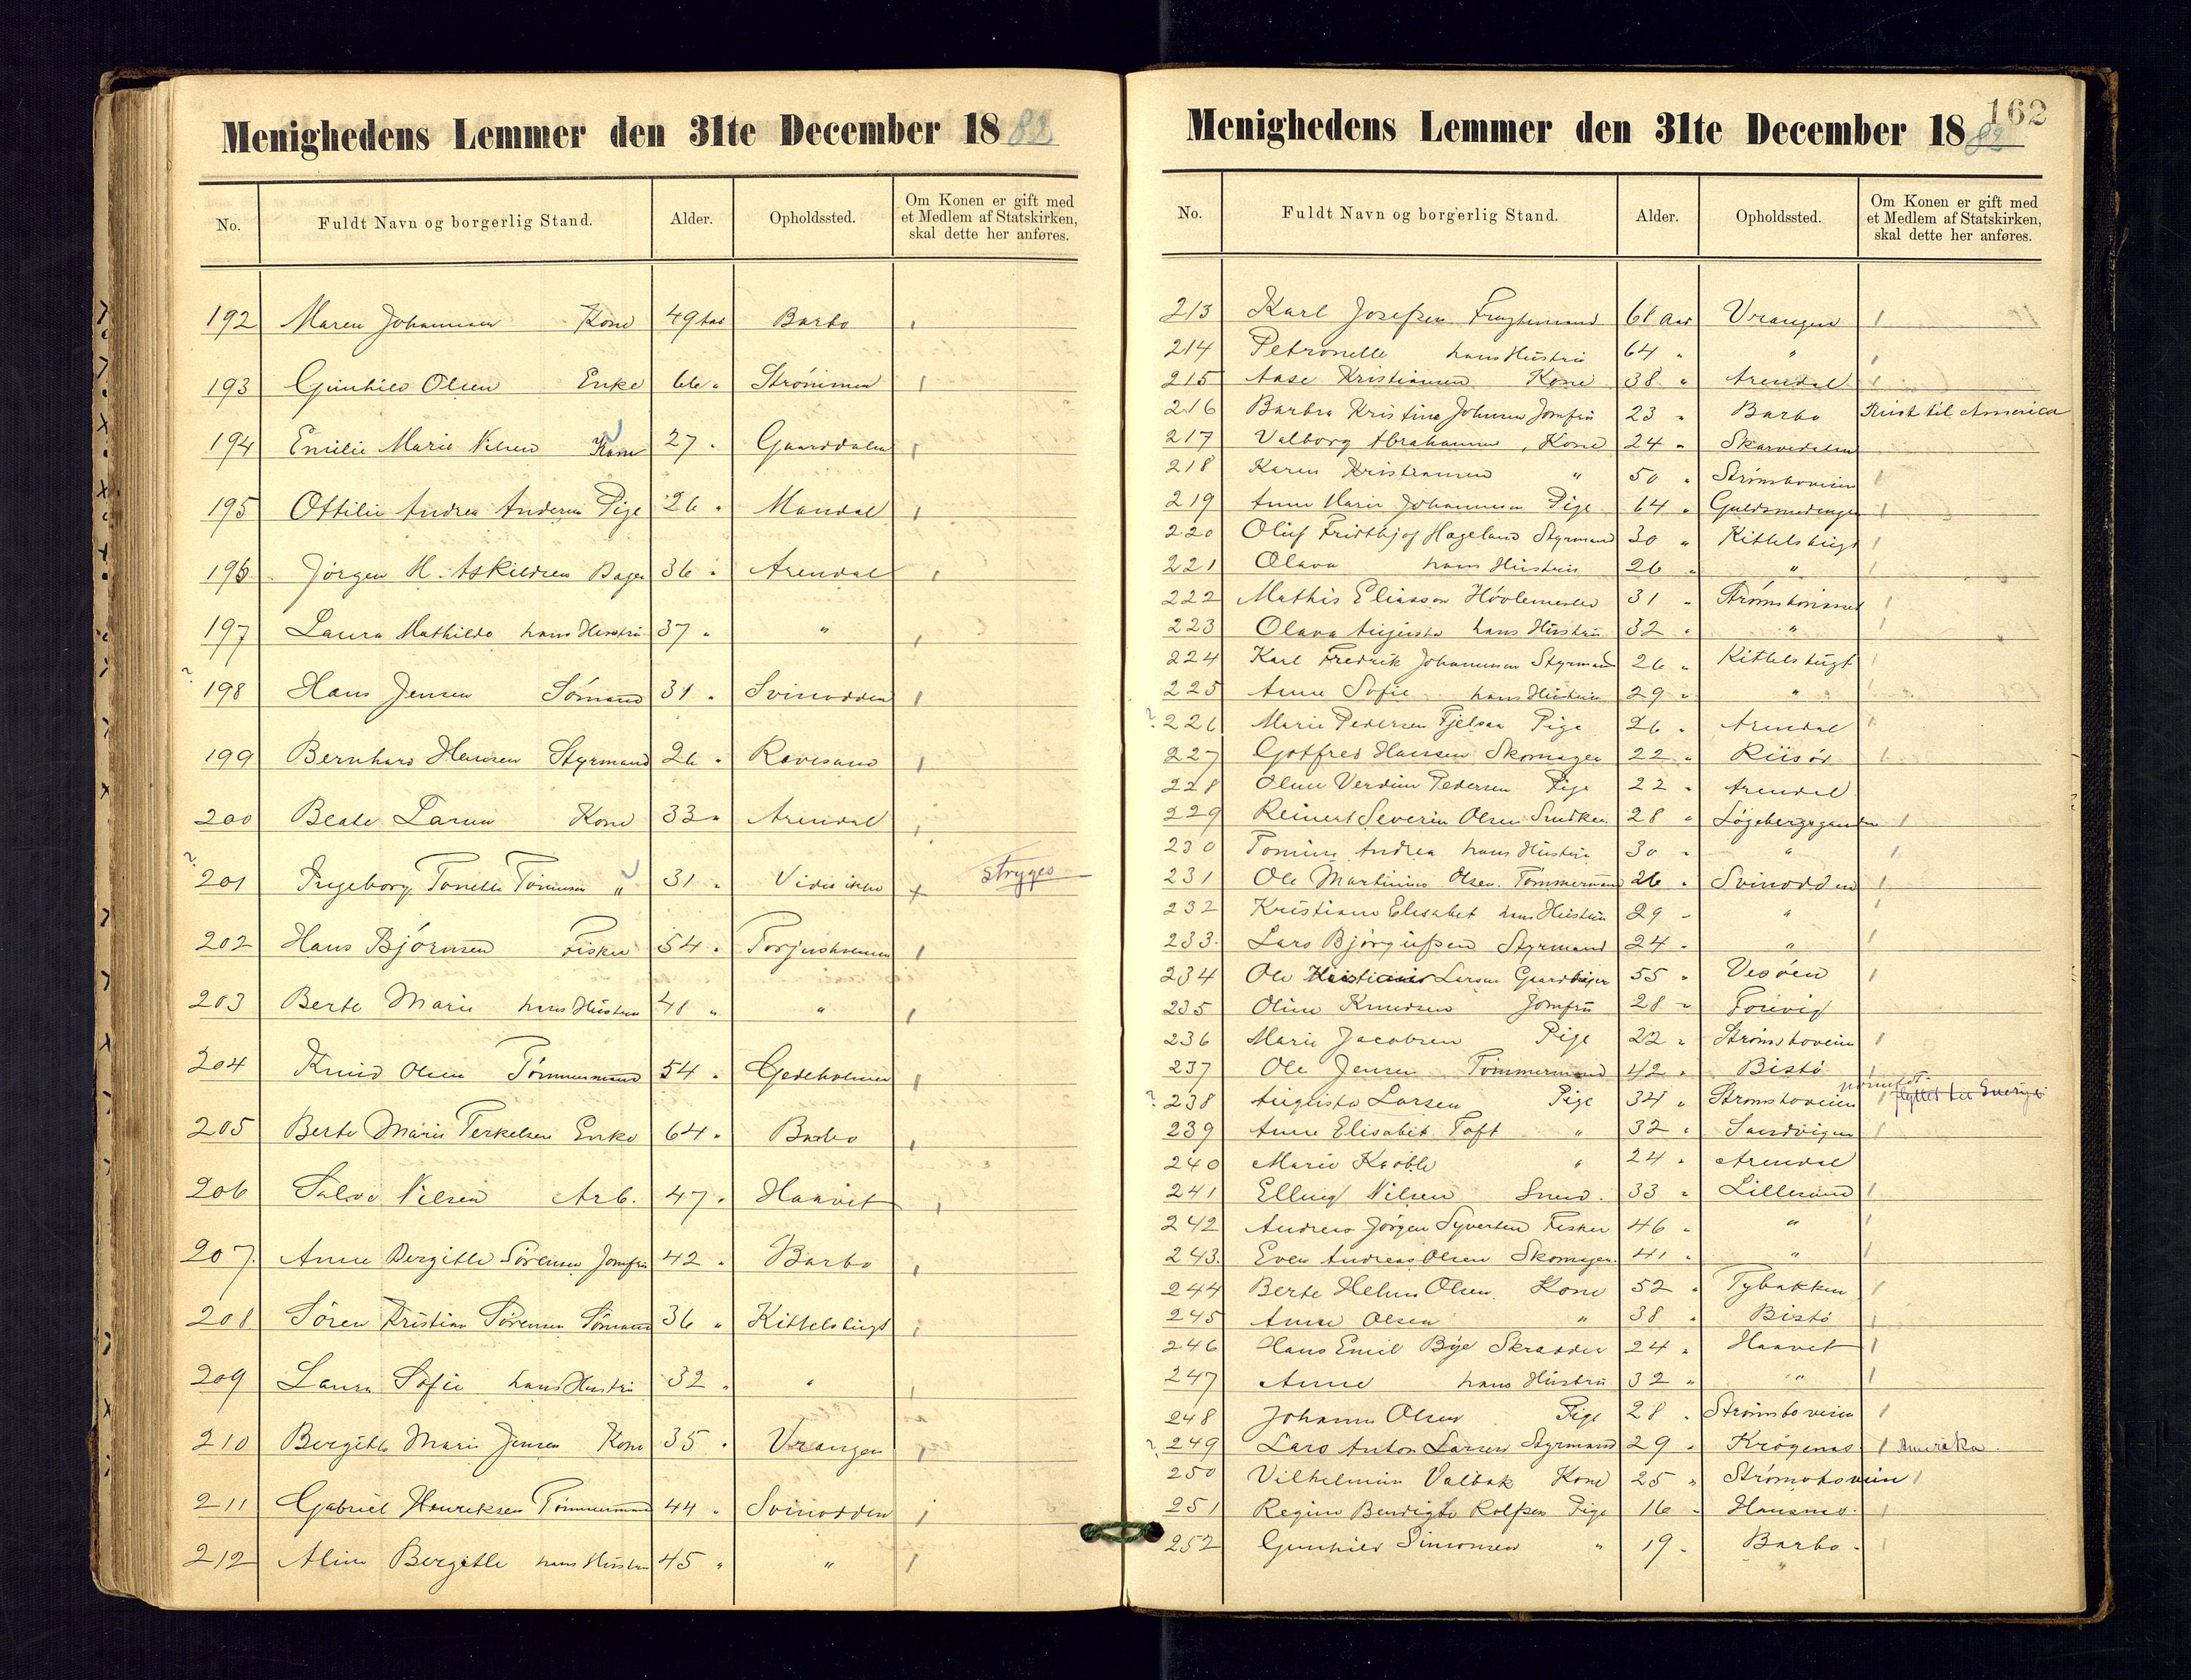 Menighedens Lemmer den 31te December 1882
No. Fuldt Navn og borgerlig Stand. Alder. Opholdssted. Om Konen er gift med et Medlem af Statskirken, skal dette her anføres.
192 Maren Johannesen Kone 49 Aar Barbo
193 Gunhild Olsen Enke 66 " Strømmen
194 Emilie Marie Nilsen Kone 27 " Gaarddalen
195 Ottilie Andrea Andersen Pige 26 " Mandal
196 Jørgen H. Askildsen Bager 36 " Arendal
197 Laura Mathilde hans Hustru 37 " "
? 198 Hans Jensen Sømand 31 " Svinodden
199 Bernhard Hansen Styrmand 26 " Revesand
200 Beate Larsen Kone 33 " Arendal
? 201 Ingeborg Tonette Tønnesen " 31 " Vides ikke + stryges
202 Hans Bjørnsen Fisker 54 " Torjusholmen
203 Berte Marie hans Hustru 41 " "
204 Knud Olsen Tømmermand 54 " Gjedeholmen
205 Berte Marie Terkelsen Enke 64 " Barbo
206 Salve Nilsen Arb. 47 " Haavet
207. Anne Bergitte Sørensen Jomfru 42 " Barbo
208 Søren Kristian Sørensen Sømand 36 " Kittelsbugt
209 Laura Sofie hans Hustru 32 " "
210 Bergitte Marie Jensen Kone 35 " Vrangen
211 Gabriel Henriksen Tømmermand 44 " Svinodden
212 Aline Bergitte hans Hustru 45 " "
162
Menighedens Lemmer den 31te December 1882
No. Fuldt Navn og borgerlig Stand. Alder. Opholdssted. Om Konen er gift med et Medlem af Statskirken, skal dette her anføres.
213 Karl Josefsen 61 Aar Vrangen
214 Petronelle hans Hustru 64 " "
215 Aase Kristiansen Kone 38 " Arendal
216 Barbra Kristine Johnsen Jomfru 23 " Barbo Reist til America
217 Valborg Abrahamsen, Kone 24 " Skarvedalen
218 Karen Kristiansen " 50 " Strømsboveien
219 Anne Marie Johannesen Pige 64 " Guldsmedengen
220 Oluf Fridthjof Hageland Styrmand 30 " Kittelsbugt
221 Olava hans Hustru 26 " "
222 Mathis Eliasson Høvlemester 31 "
223 Olava Augusta hans Hustru 32 " "
224 Karl Fredrik Johannesen Styrmand 26 " Kittelsbugt
225 Anne Sofie hans Hustru 29 " "
? 226 Marie Pedersen Fjelsaa Pige 26 " Arendal
227 Gotfred Hansen Skomager 22 " Riisør
228 Oline Verdine Pedersen Pige 22 " Arendal
229 Reinert Severin Olsen Snedker 28 "
230 Tomine Andrea hans Hustru 30 " "
231 Ole Martinius Olsen. Tømmermand 26 " Svinodden
232 Kristiane Elisabet hans Hustru 29 " "
233. Lars Bjørgufsen Styrmand 24 " "
234 Ole Kristian Larsen 55 " Vesøen
235 Oline Knudsen Jomfru 28 " Forevig
236 Marie Jacobsen Pige 22 " Strømsboveien
237 Ole Jensen Tømmermand 42 " Bistø
? 238 Augusta Larsen Pige 34 " Strømsboveien flyttet til Sverige
239 Anne Elisabet Toft " 32 " Sandvigen
240 Marie Knoble " 24 " Arendal
241 Elling Nilsen Smed. 33 " Lillesand
242 Andreas Jørgen Syvertsen Fisker 46 " "
243. Even Andreas Olsen Skomager 41 " "
244 Berte Helene Olsen. Kone 52 " Tybakken
245 Anne Olsen " 38 " Bistø
246 Hans Emil Bye Skrædder 24 " Haavet
247 Anne hans Hustru 32 " "
248 Johanne Olsen Pige 28 " Strømsboveien
? 249 Lars Anton Larsen Styrmand 29 " Krøgenæs Amerika
250 Vilhelmine Valbak Kone 25 " Strømsboveien
251 Regine Bendigte Rolfsen Pige 16 "
252 Gunhild Simonsen " 19 " Barbo
"